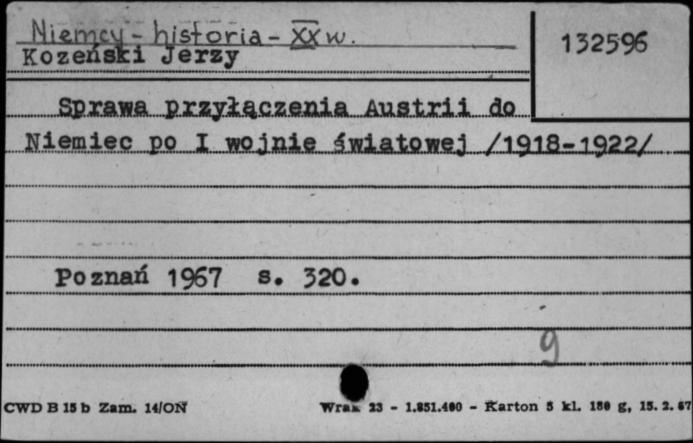 Niemcy - historia - XX w.
132596
Kozeński Jerzy
Sprawa przyłączenia Austrii do
Niemiec po I wojnie światowej /1918-1922/
Poznań 1967 s. 320.
9
CWD B 15 b Zam. 14/ON 23 - 1.851.400 - Karton 5 kl. 180 g, 15. 2. 67